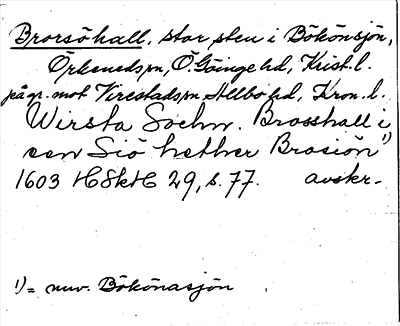 Brorsöhall, stor sten i Bökönsjön,
Örkenedspn, Ö. Göinge hd, Krist. l.
på gr. mot Virestadspn Allbo hd, Kron. l.
Wirsta Sochn. Brosshall i
een Siö hether Brosiön 1)
1603 HSkH 29, s. 77. avskr.
1) = nuv. Bökönasjön